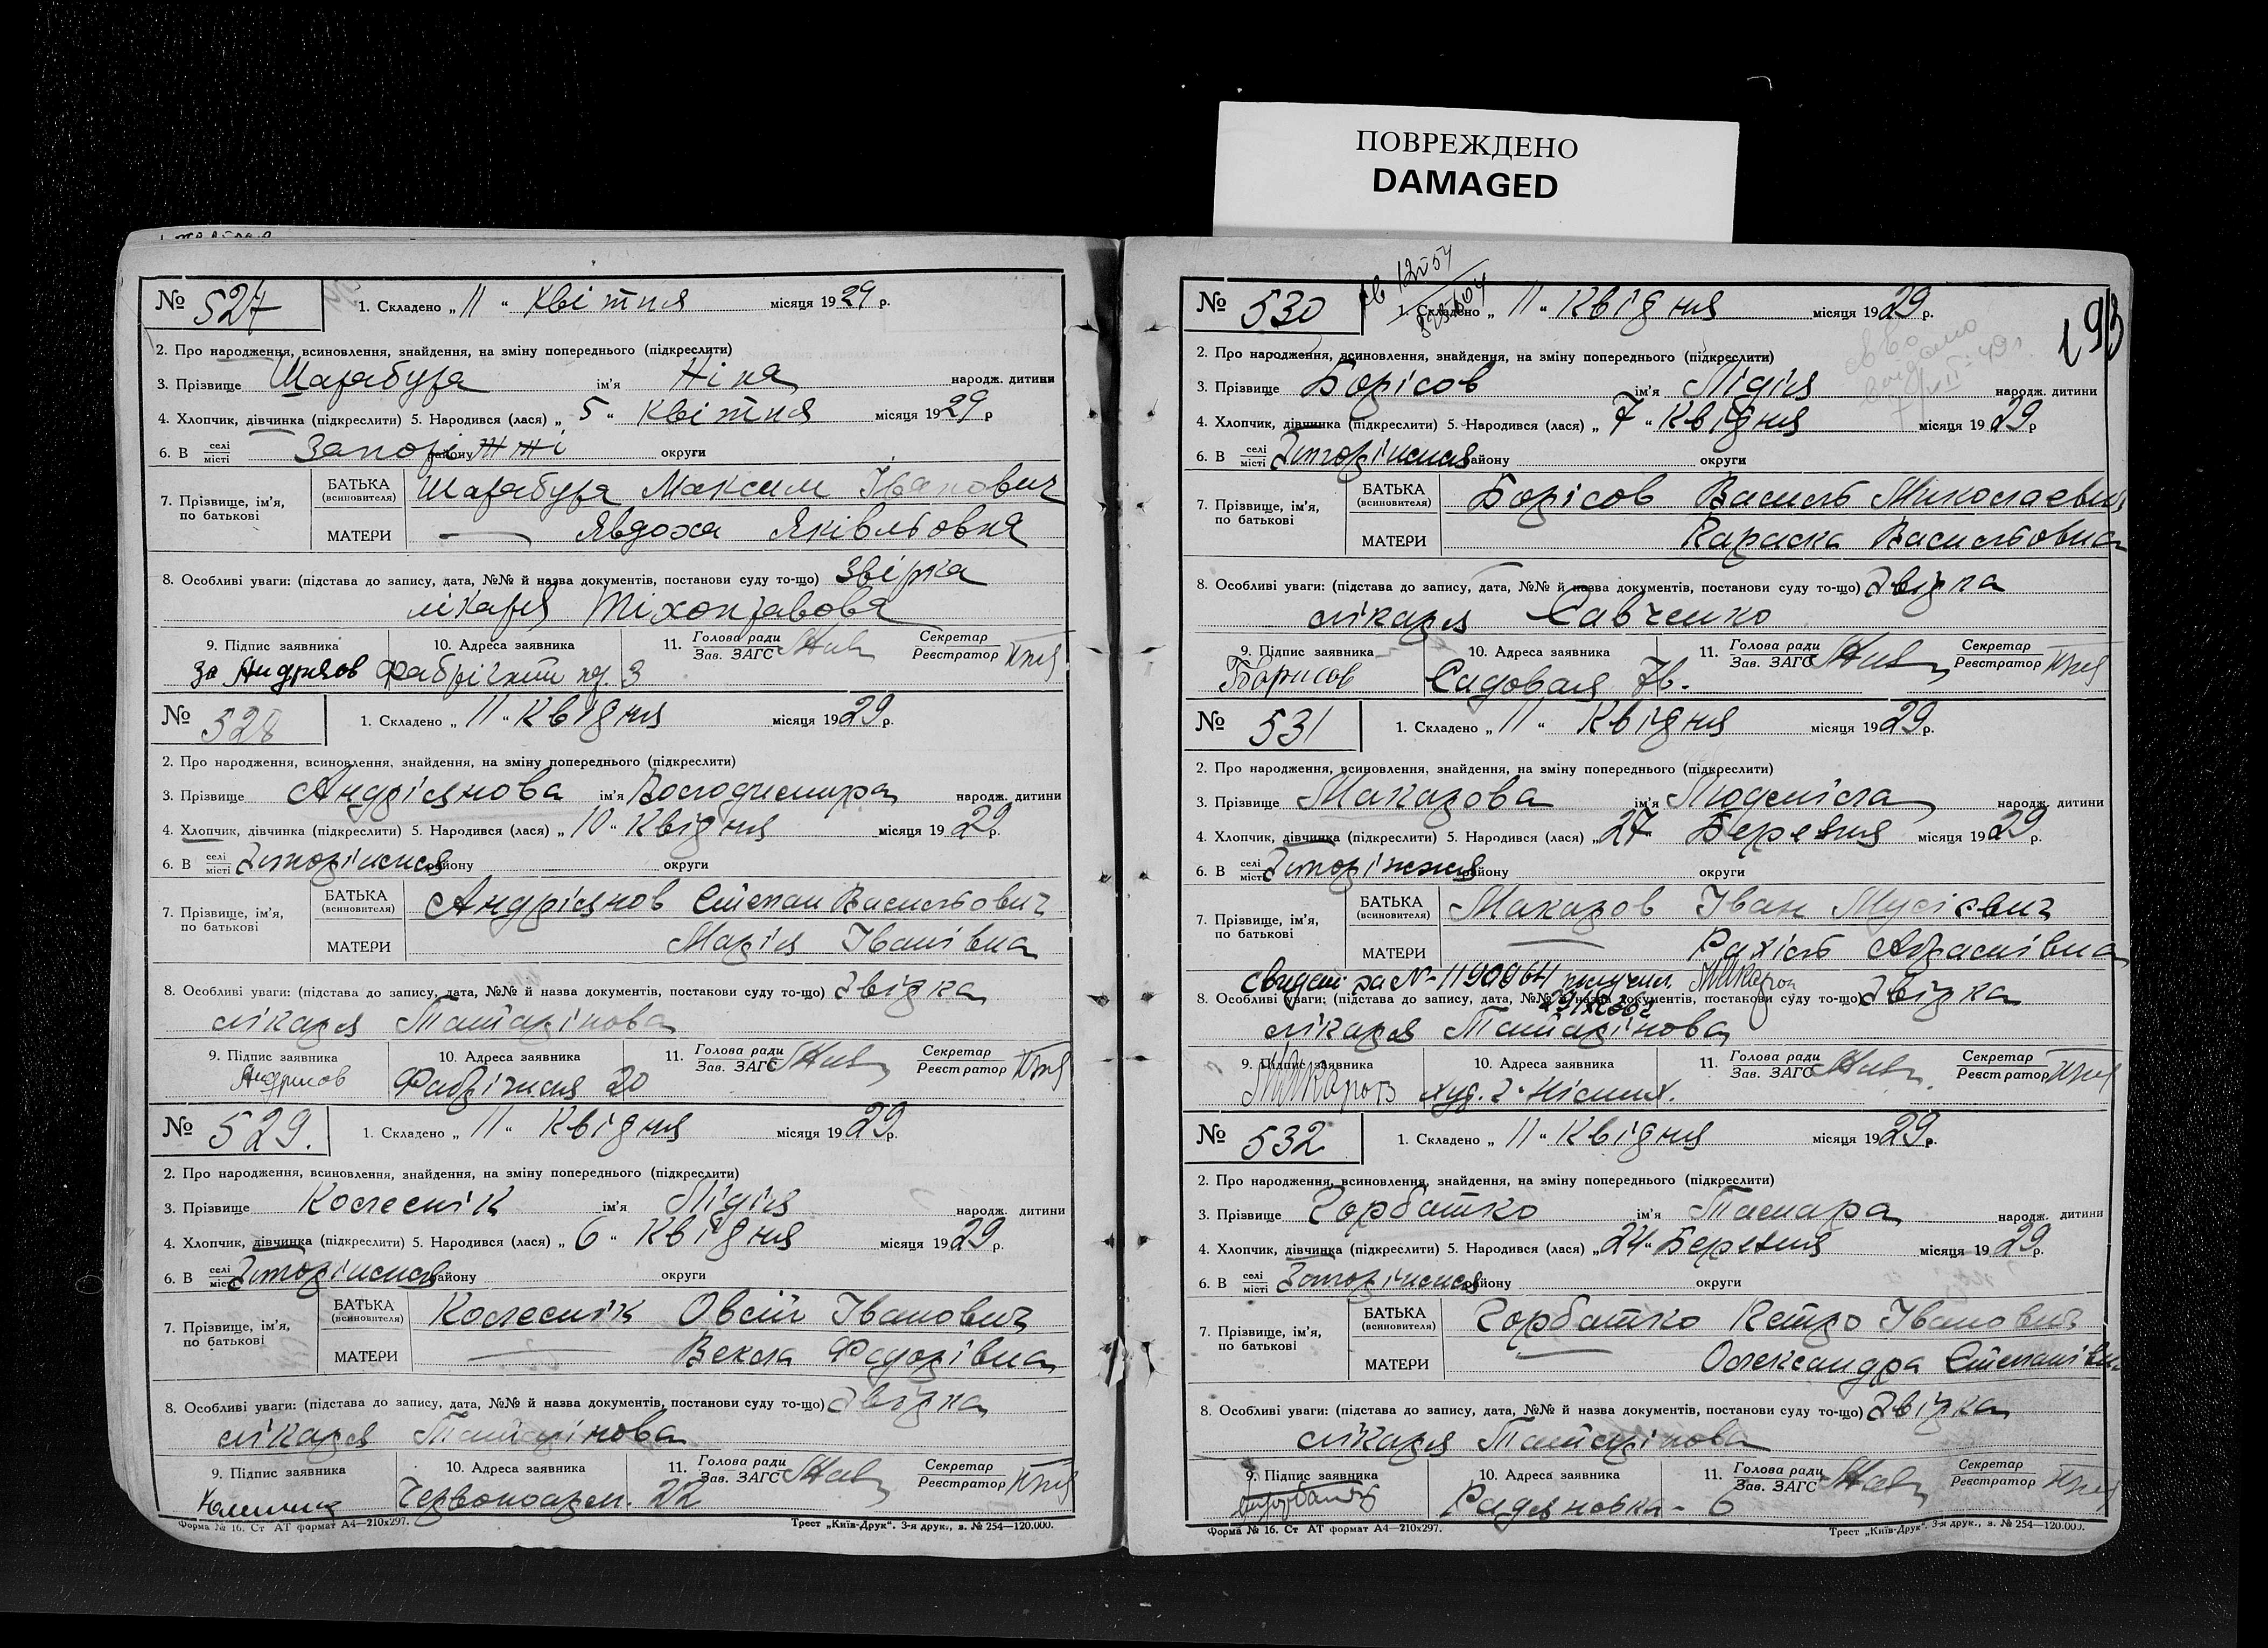 ПОВРЕЖДЕНО
DAMAGED
№ 527
1. Складено „ 11 “ Квітня місяця 1929 р.
2. Про народження, всиновлення, знайдення, на зміну попереднього (підкреслити)
3. Прізвище Шарабура ім'я Ніна народж. дитини
4. Хлопчик, дівчинка (підкреслити) 5. Народився (лася) „ 5 “ Квітня місяця 1929 р
6. В селі місті Запоріжжі району округи
7. Прізвище, ім'я, по батькові
БАТЬКА (всиновителя) Шарабура Максим Іванович
МАТЕРИ — Явдоха Яківльовна
8. Особливі уваги: (підстава до запису, дата, №№ й назва документів, постанови суду то-що) Звірка
лікаря Тіхонравова
9. Підпис заявника 10. Адреса заявника 11. Голова ради Зав. ЗАГС Секретар Реєстратор
за Андріяов
№ 528
1. Складено „ 11 “ Квідня місяця 1929 р.
2. Про народження, всиновлення, знайдення, на зміну попереднього (підкреслити)
3. Прізвище Андріянова ім'я Володимира народж. дитини
4. Хлопчик, дівчинка (підкреслити) 5. Народився (лася) „ 10 “ Квідня місяця 1929 р.
6. В селі місті Запоріжжя району округи
7. Прізвище, ім'я, по батькові
БАТЬКА (всиновителя) Андріянов Степан Васильович
МАТЕРИ Марія Іванівна
8. Особливі уваги: (підстава до запису, дата, №№ й назва документів, постанови суду то-що) Звірка
лікаря Татарінова
9. Підпис заявника 10. Адреса заявника 11. Голова ради Зав. ЗАГС Секретар Реєстратор
Фабрічная 20
№ 529.
1. Складено „ 11 “ Квідня місяця 1929 р.
2. Про народження, всиновлення, знайдення, на зміну попереднього (підкреслити)
3. Прізвище Колеснік ім'я Лідія народж. дитини
4. Хлопчик, дівчинка (підкреслити) 5. Народився (лася) „ 6 “ Квідня місяця 1929 р.
6. В селі місті Запоріжжя району округи
7. Прізвище, ім'я, по батькові
БАТЬКА (всиновителя) Колеснік Овсій Іванович
МАТЕРИ — Векла Федорівна
8. Особливі уваги: (підстава до запису, дата, №№ й назва документів, постанови суду то-що) Звірка
лікаря Татарінова
9. Підпис заявника 10. Адреса заявника 11. Голова ради Зав. ЗАГС Секретар Реєстратор
Червоноарм. 22
Форма № 16. Ст АТ формат А4—210х297. Трест „Київ-Друк“. 3-я друк., в. № 254—120.000.
193
№ 530
1. Складено „ 11 “ Квідня місяця 1929 р.
2. Про народження, всиновлення, знайдення, на зміну попереднього (підкреслити)
3. Прізвище Борісов ім'я Лідія народж. дитини
4. Хлопчик, дівчинка (підкреслити) 5. Народився (лася) „ 7 “ Квідня місяця 1929 р
6. В селі місті Запоріжжя району округи
7. Прізвище, ім'я, по батькові
БАТЬКА (всиновителя) Борісов Василь Миколаєвич
МАТЕРИ Параска Васильовна
8. Особливі уваги: (підстава до запису, дата, №№ й назва документів, постанови суду то-що) Звірка
лікаря Савченко
9. Підпис заявника 10. Адреса заявника 11. Голова ради Зав. ЗАГС Секретар Реєстратор
Борисов Садовая 7в.
№ 531
1. Складено „ 11 “ Квідня місяця 1929 р.
2. Про народження, всиновлення, знайдення, на зміну попереднього (підкреслити)
3. Прізвище Макарова ім'я Людміла народж. дитини
4. Хлопчик, дівчинка (підкреслити) 5. Народився (лася) „ 27 Березня місяця 1929 р.
6. В селі місті Запоріжжя району округи
7. Прізвище, ім'я, по батькові
БАТЬКА (всиновителя) Макаров Іван Мусієвич
МАТЕРИ — Рахіль Абрамівна
8. Особливі уваги: (підстава до запису, дата, №№ й назва документів, постанови суду то-що) Звірка
лікаря Татарінова
9. Підпис заявника 10. Адреса заявника 11. Голова ради Зав. ЗАГС Секретар Реєстратор
№ 532
1. Складено „ 11 “ Квідня місяця 1929 р.
2. Про народження, всиновлення, знайдення, на зміну попереднього (підкреслити)
3. Прізвище Горбатко ім'я Тамара народж. дитини
4. Хлопчик, дівчинка (підкреслити) 5. Народився (лася) „ 24 “ Березня місяця 1929 р.
6. В селі місті Запоріжжя району округи
7. Прізвище, ім'я, по батькові
БАТЬКА (всиновителя) Горбатко Петро Іванович
МАТЕРИ — Олександра Степанівна
8. Особливі уваги: (підстава до запису, дата, №№ й назва документів, постанови суду то-що) Звірка
лікаря Татарінова
9. Підпис заявника 10. Адреса заявника 11. Голова ради Зав. ЗАГС Секретар Реєстратор
Форма № 16. Ст АТ формат А4—210х297. Трест „Київ-Друк“. 3-я друк., в. № 254—120.000.